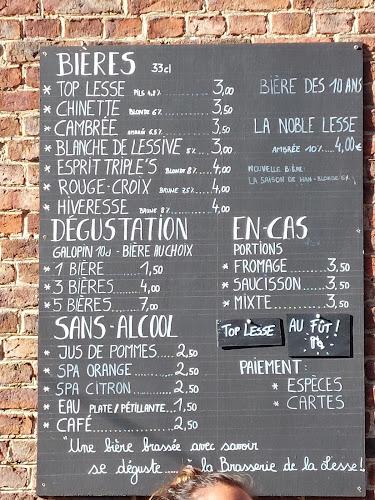 BIÈRES 33cl
* TOP LESSE PILS 4.8% 3,00
* CHINETTE BLONDE 6% 3,50
* CAMBRÉE AMBRÉE 6,5% 3,50
* BLANCHE DE LESSIVE 5% 3,00
* ESPRIT TRIPLE'S BLONDE 8% 4,00
* ROUGE-CROIX BRUNE 7.5% 4,00
* HIVERESSE BRUNE 8% 4,00
BIÈRE DES 10 ANS
LA NOBLE LESSE
AMBRÉE 10% 4,00€
NOUVELLE BIÈRE:
LA SAISON DE HAN - BLONDE 6%
DÉGUSTATION
GALOPIN 10cl - BIÈRE AU CHOIX
* 1 BIÈRE 1,50
* 3 BIÈRES 4,00
* 5 BIÈRES 7,00
EN-CAS
PORTIONS
* FROMAGE 3,50
* SAUCISSON 3,50
* MIXTE 3,50
SANS-ALCOOL
* JUS DE POMMES 2,50
* SPA ORANGE 2,50
* SPA CITRON 2,50
* EAU PLATE / PÉTILLANTE 1,50
* CAFÉ 2,50
TOP LESSE
AU FÛT!
PAIEMENT:
* ESPÈCES
* CARTES
"Une bière brassée avec savoir
se déguste ..... à la Brasserie de la Lesse!